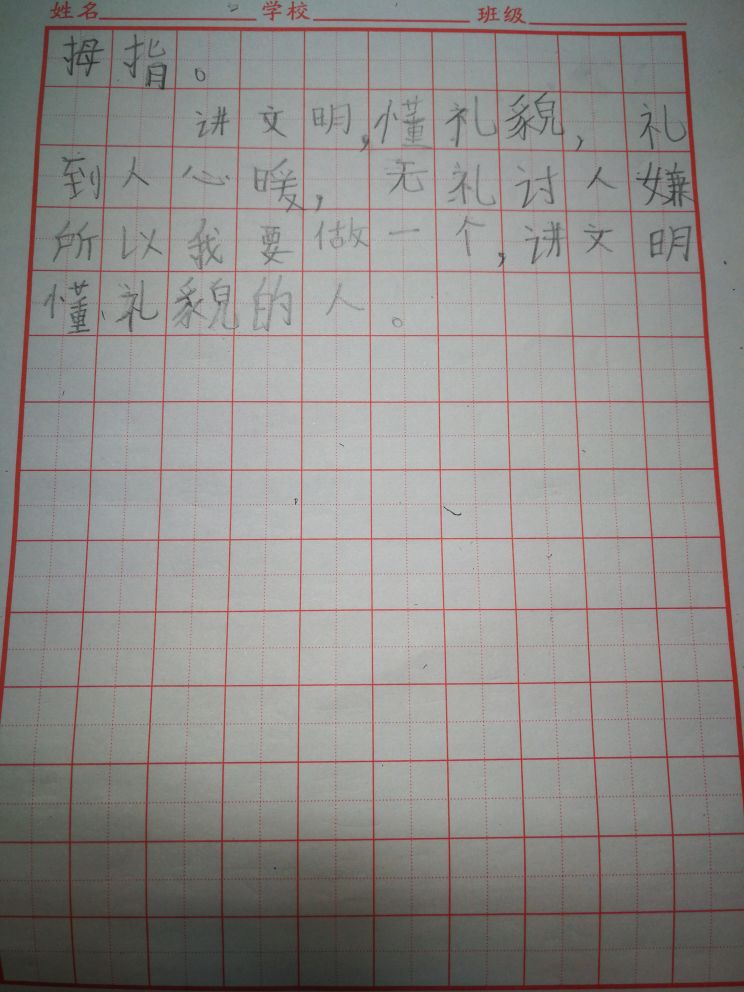 姓名 学校 班级
拇指。
讲文明,懂礼貌,礼
到人心暖,无礼讨人嫌
所以我要做一个,讲文明
懂、礼貌的人。